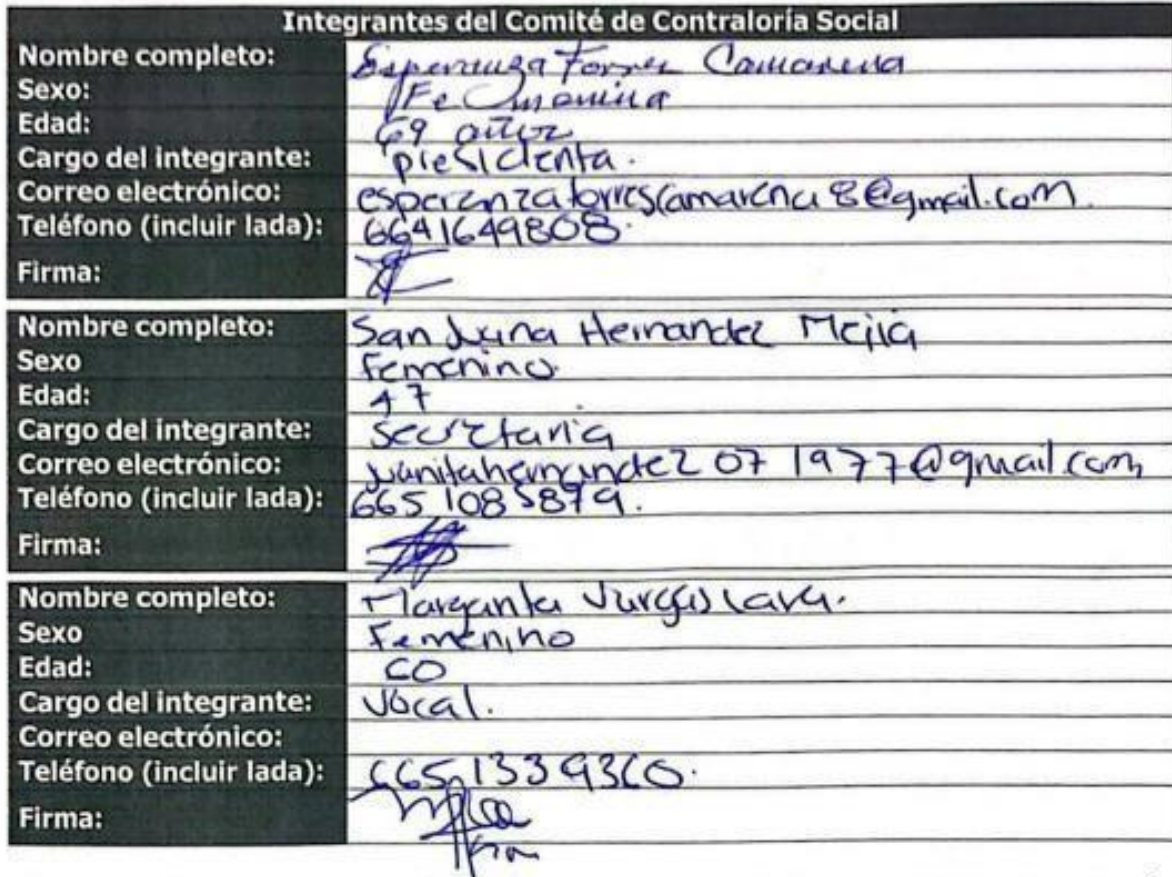 Integrantes del Comité de Contraloría Social
Nombre completo: Esperanza Torres Camarena
Sexo: Femenina
Edad: 69 años
Cargo del integrante: presidenta.
Correo electrónico: esperanzatorrescamarena8@gmail.com.
Teléfono (incluir lada): 6641649808.
Firma:
Nombre completo: San Juana Hernandez Mejia
Sexo Femenino.
Edad: 47
Cargo del integrante: secretaria
Correo electrónico: juanitahernandez071977@gmail.com
Teléfono (incluir lada): 665 1085879.
Firma:
Nombre completo: Margarita Vargas Lara.
Sexo Femenino
Edad: 60
Cargo del integrante: Vocal.
Correo electrónico:
Teléfono (incluir lada): 665 133 9360.
Firma: